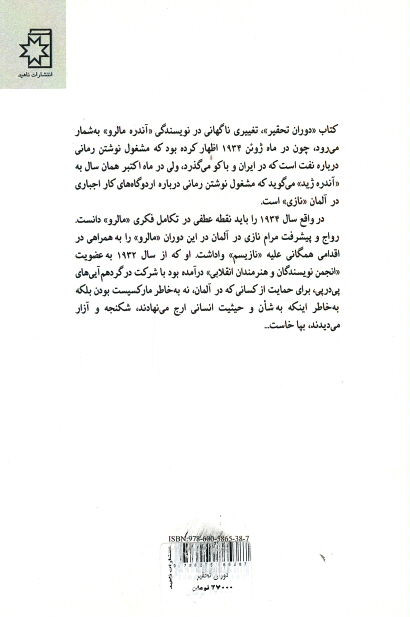 انتشارات ناهید
کتاب «دوران تحقیر»، تغییری ناگهانی در نویسندگی «آندره مالرو» به‌شمار
می‌رود، چون در ماه ژوئن ۱۹۳۴ اظهار کرده بود که مشغول نوشتن رمانی
درباره نفت است که در ایران و باکو می‌گذرد، ولی در ماه اکتبر همان سال به
«آندره ژید» می‌گوید که مشغول نوشتن رمانی درباره اردوگاه‌های کار اجباری
در آلمان «نازی» است.
در واقع سال ۱۹۳۴ را باید نقطه عطفی در تکامل فکری «مالرو» دانست.
رواج و پیشرفت مرام نازی در آلمان در این دوران «مالرو» را به همراهی در
اقدامی همگانی علیه «نازیسم» واداشت. او که از سال ۱۹۳۲ به عضویت
«انجمن نویسندگان و هنرمندان انقلابی» درآمده بود با شرکت در گردهم‌آیی‌های
پی‌درپی، برای حمایت از کسانی که در آلمان، نه به‌خاطر مارکسیست بودن بلکه
به‌خاطر اینکه به شأن و حیثیت انسانی ارج می‌نهادند، شکنجه و آزار
می‌دیدند، بپا خاست...
ISBN:978-600-5865-38-7
انتشارات ناهید
دوران تحقیر
۲۷۰۰۰ تومان